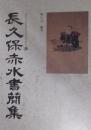 長久保赤水書簡集